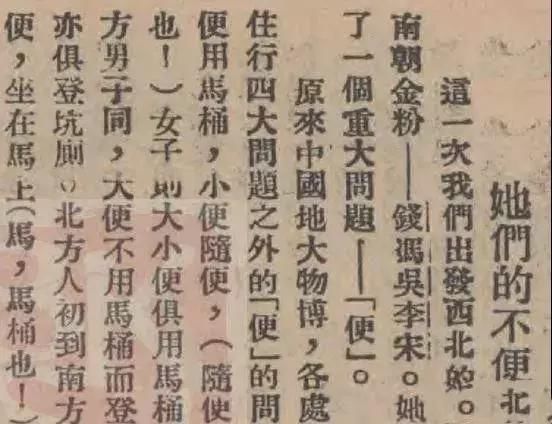 她們的不便北
這一次我們出發西北。
南朝金粉——錢馮吳李宋。她
了一個重大問題——「便」。
原來中國地大物博，各處
住行四大問題之外的「便」的問
便用馬桶，小便隨便，（隨便
也！）女子則大小便俱用馬桶
方男子同，大便不用馬桶而登
亦俱登坑廁。北方人初到南方
便，坐在馬上（馬，馬桶也！）